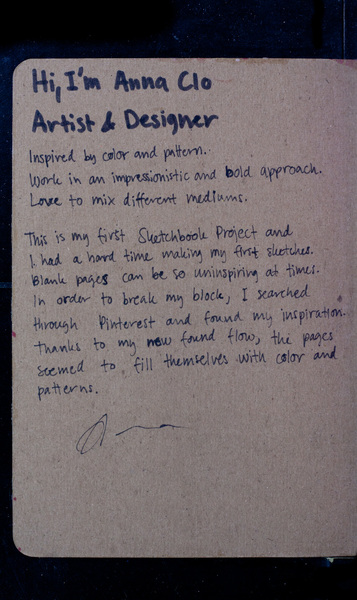 Hi, I'm Anna Clo
Artist & Designer
Inspired by color and pattern.
Work in an impressionistic and bold approach.
Love to mix different mediums.
This is my first Sketchbook Project and
I had a hard time making my first sketches.
Blank pages can be so uninspiring at times.
In order to break my block, I searched
through Pinterest and found my inspiration.
Thanks to my new found flow, the pages
seemed to fill themselves with color and
patterns.